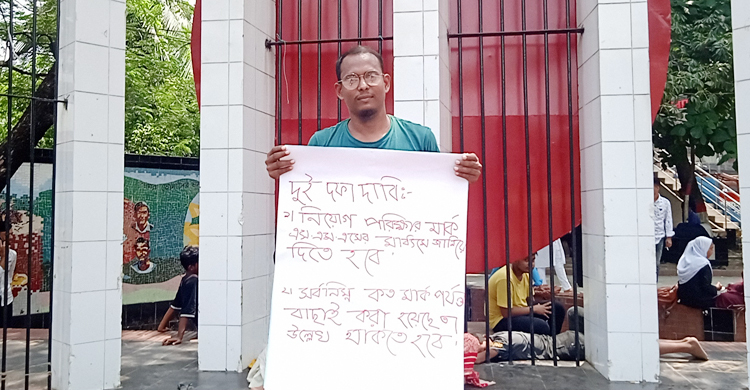 দুই দফা দাবি:-
১। নিয়োগ পরিক্ষার মার্ক
এস.এম.এসের মাধ্যমে জানিয়ে
দিতে হবে।
২। সর্বনিম্ন কত মার্ক পর্যন্ত
বাছাই করা হয়েছে তা
উল্লেখ থাকতে হবে।